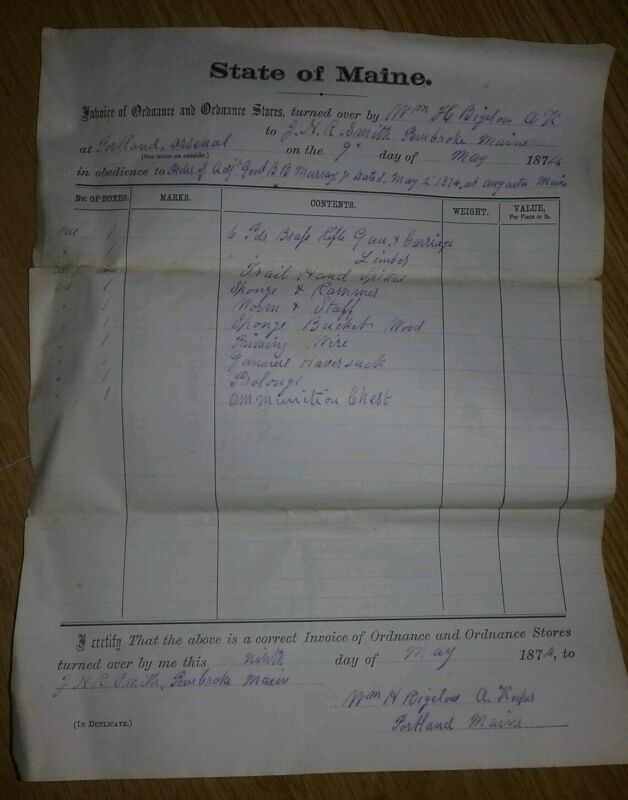 State of Maine.
Invoice of Ordnance and Ordnance Stores, turned over by Wm H Bigelow A. K
at Portland, arsenal to J. H. R. Smith Pembroke Maine
(See notes on outside.) on the 9" day of May 1874
in obedience to Order of Adjt Genl B B Murray Jr Dated, May 2" 1874, at augusta Maine
No: OF BOXES. MARKS. CONTENTS. WEIGHT. VALUE, Per Piece or lb.
One 1 6 Pdr Brass Rifle Gun & Carriage
Limber
2 Trail Hand Spikes
1 Sponge & Rammer
1 Worm & Staff
1 Sponge Bucket Wood
1 Priming Wire
1 Gunners Haversack
1 Prolonge
1 ammunition Chest
I certify That the above is a correct Invoice of Ordnance and Ordnance Stores
turned over by me this ninth day of May 1874, to
J H R Smith, Pembroke Maine
Wm H Bigelow A. Keeper
(IN DUPLICATE.) Portland Maine